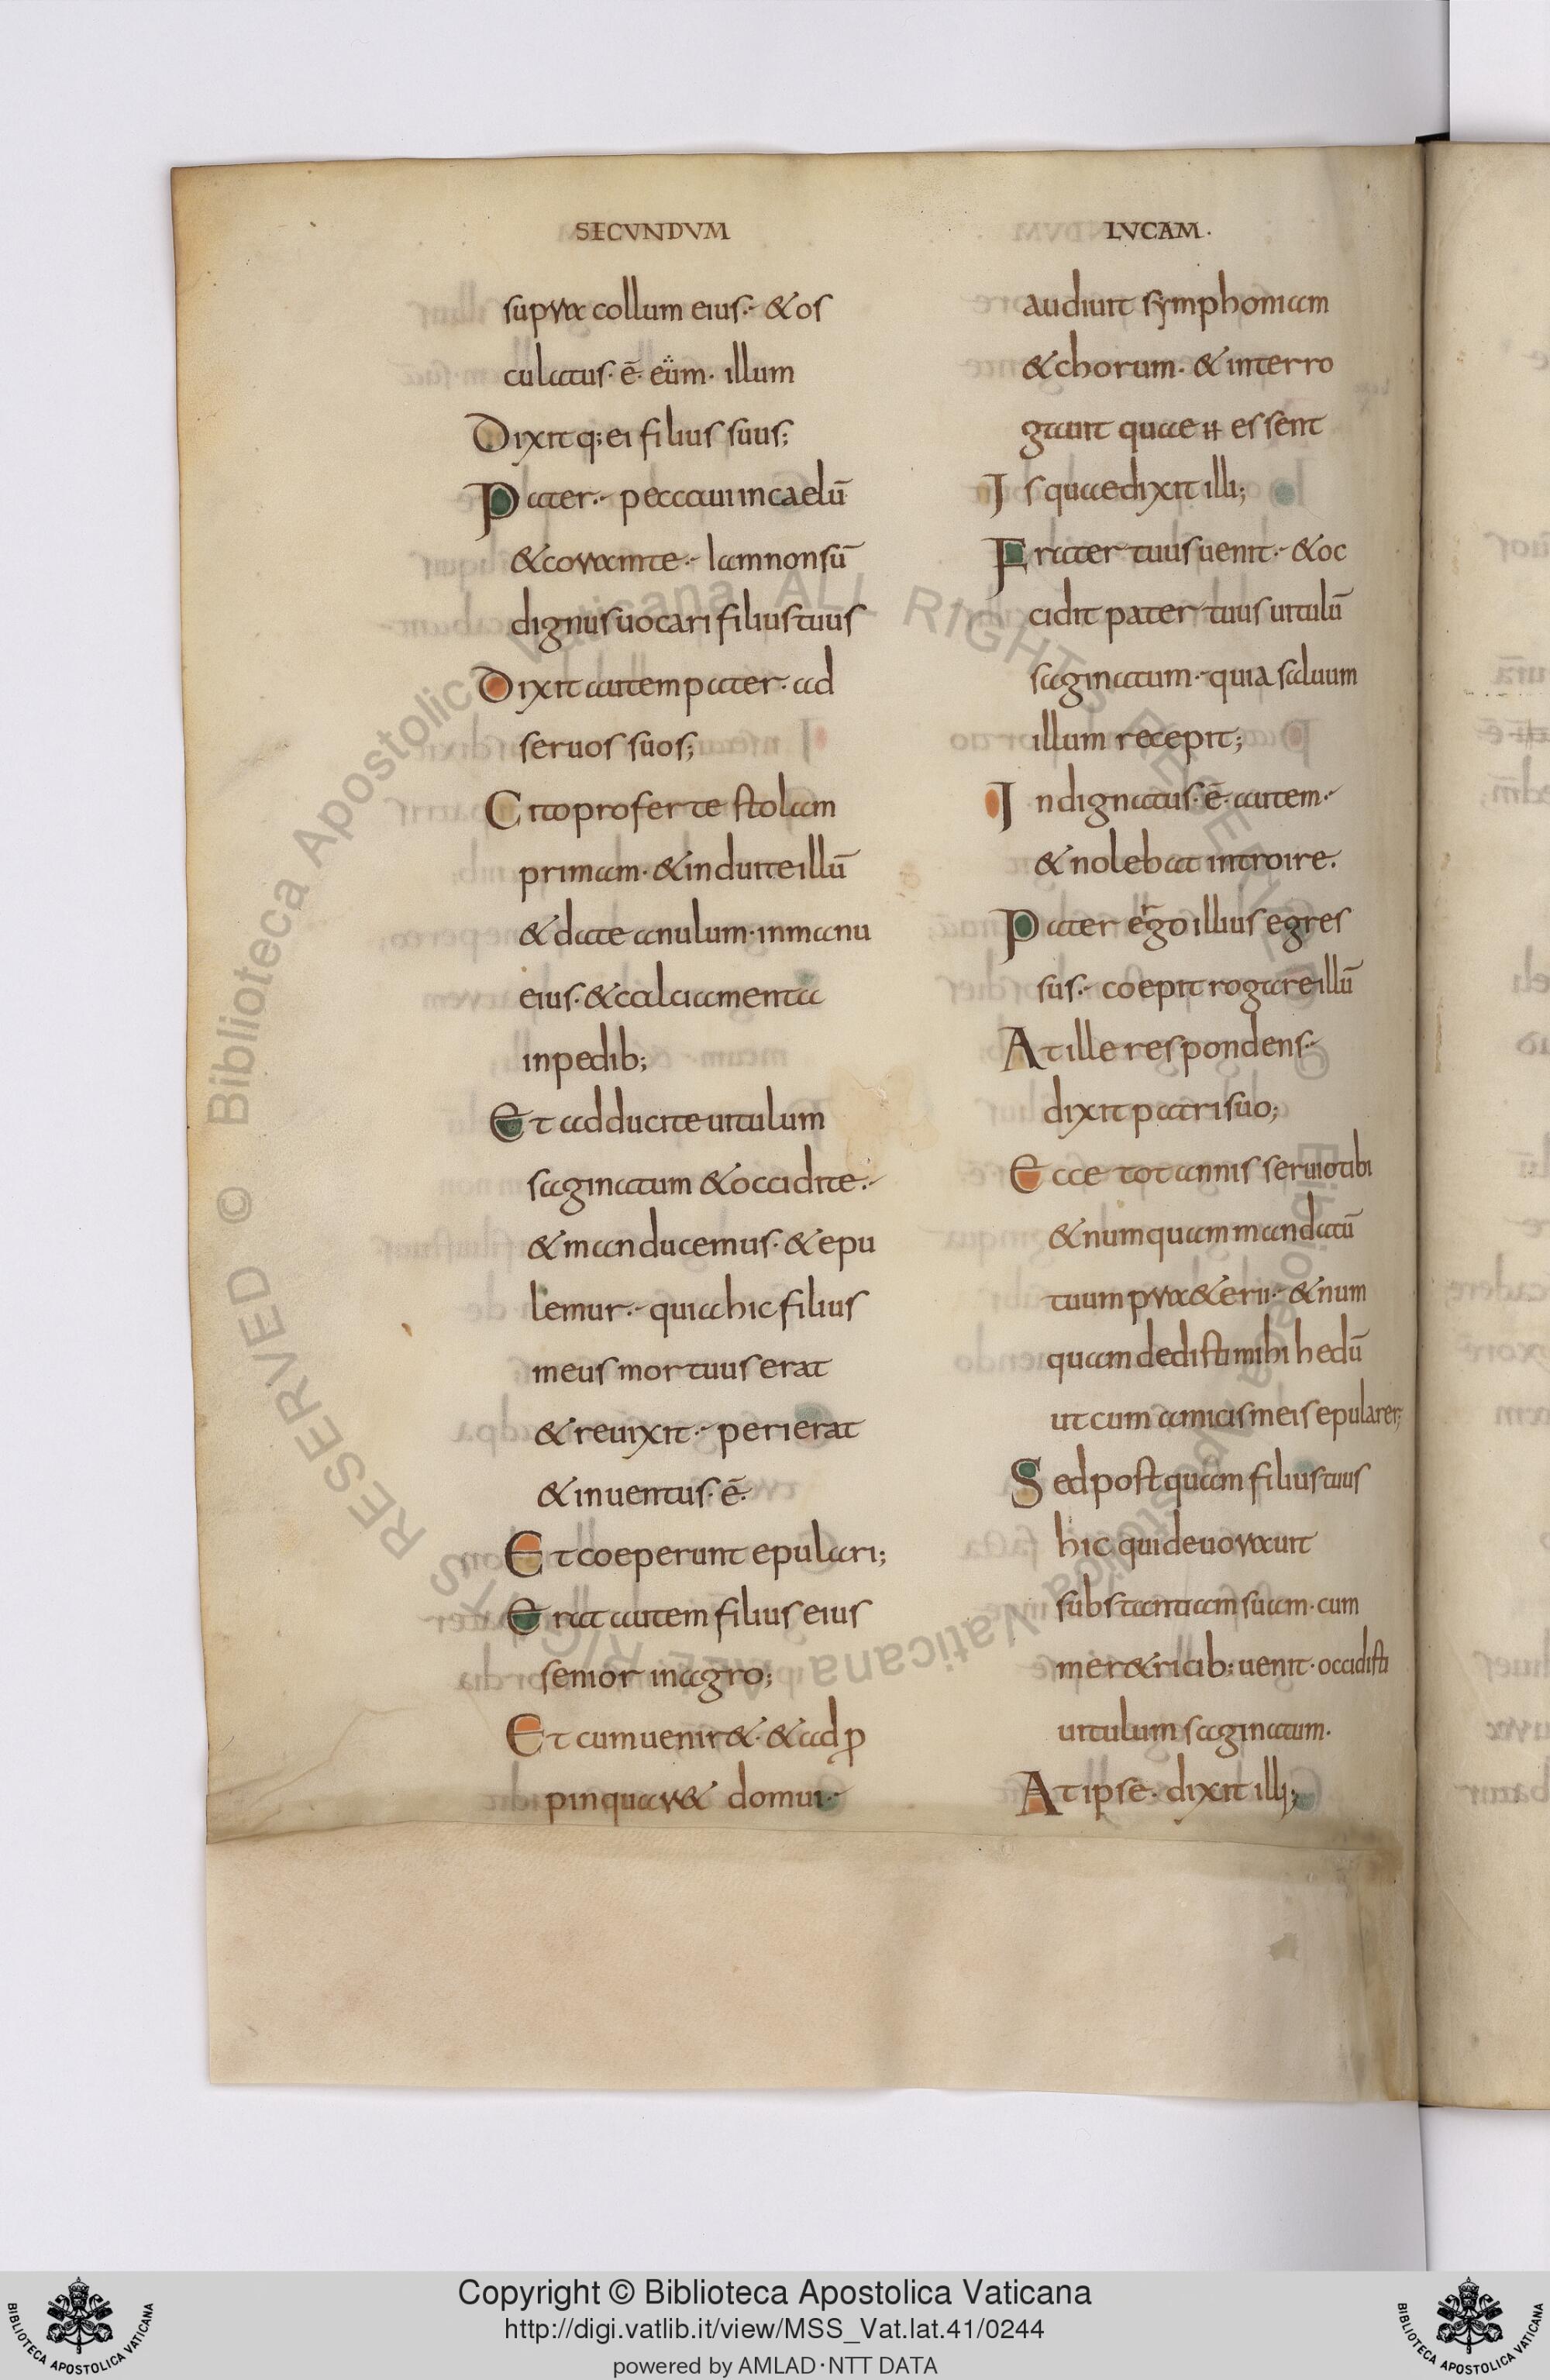 SECVNDVM
supra collum eius. & os
culatus. ē. eüm. illum
Dixitq; ei filius suus;
Pater. peccaui in caelū
& cora te. Iam non sū
dignus uocari filius tuus
Dixit autem pater. ad
seruos suos;
Cito proferte stolam
primam. & induite illū
& date anulum. in manu
eius. & calciamenta
in pedib;
Et adducite uitulum
saginatum & occidite.
& manducemus. & epu
lemur. quia hic filius
meus mortuus erat
& reuixit. perierat
& inuentus. ē.
Et coeperunt epulari;
Erat autem filius eius
senior in agro;
Et cum uenir&. & adp̱
pinquar& domui.
LVCAM.
audiuit symphoniam
& chorum. & interro
gauit quae H essent
Isquae dixit illi;
Frater tuus uenit. & oc
cidit pater tuus uitulū
saginatum. quia saluum
illum recepit;
Indignatus. ē. autem.
& nolebat introire.
Pater ergo illius egres
sus. coepit rogare illū
At ille respondens.
dixit patri suo;
Ecce tot annis seruio tibi
& numquam mandatū
tuum pra&erii. & num
quam dedisti mihi hedū
ut cum amicis meis epularer;
Sed postquam filius tuus
hic qui deuorauit
substantiam suam. cum
mer&ricib; uenit. occidisti
uitulum saginatum.
At ipse. dixit illi;
Copyright © Biblioteca Apostolica Vaticana
http://digi.vatlib.it/view/MSS_Vat.lat.41/0244
powered by AMLAD·NTT DATA
BIBLIOTECA APOSTOLICA VATICANA
BIBLIOTECA APOSTOLICA VATICANA